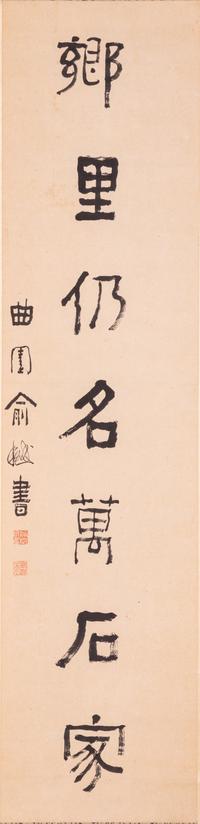 鄉里仍名萬石家
曲園俞樾書